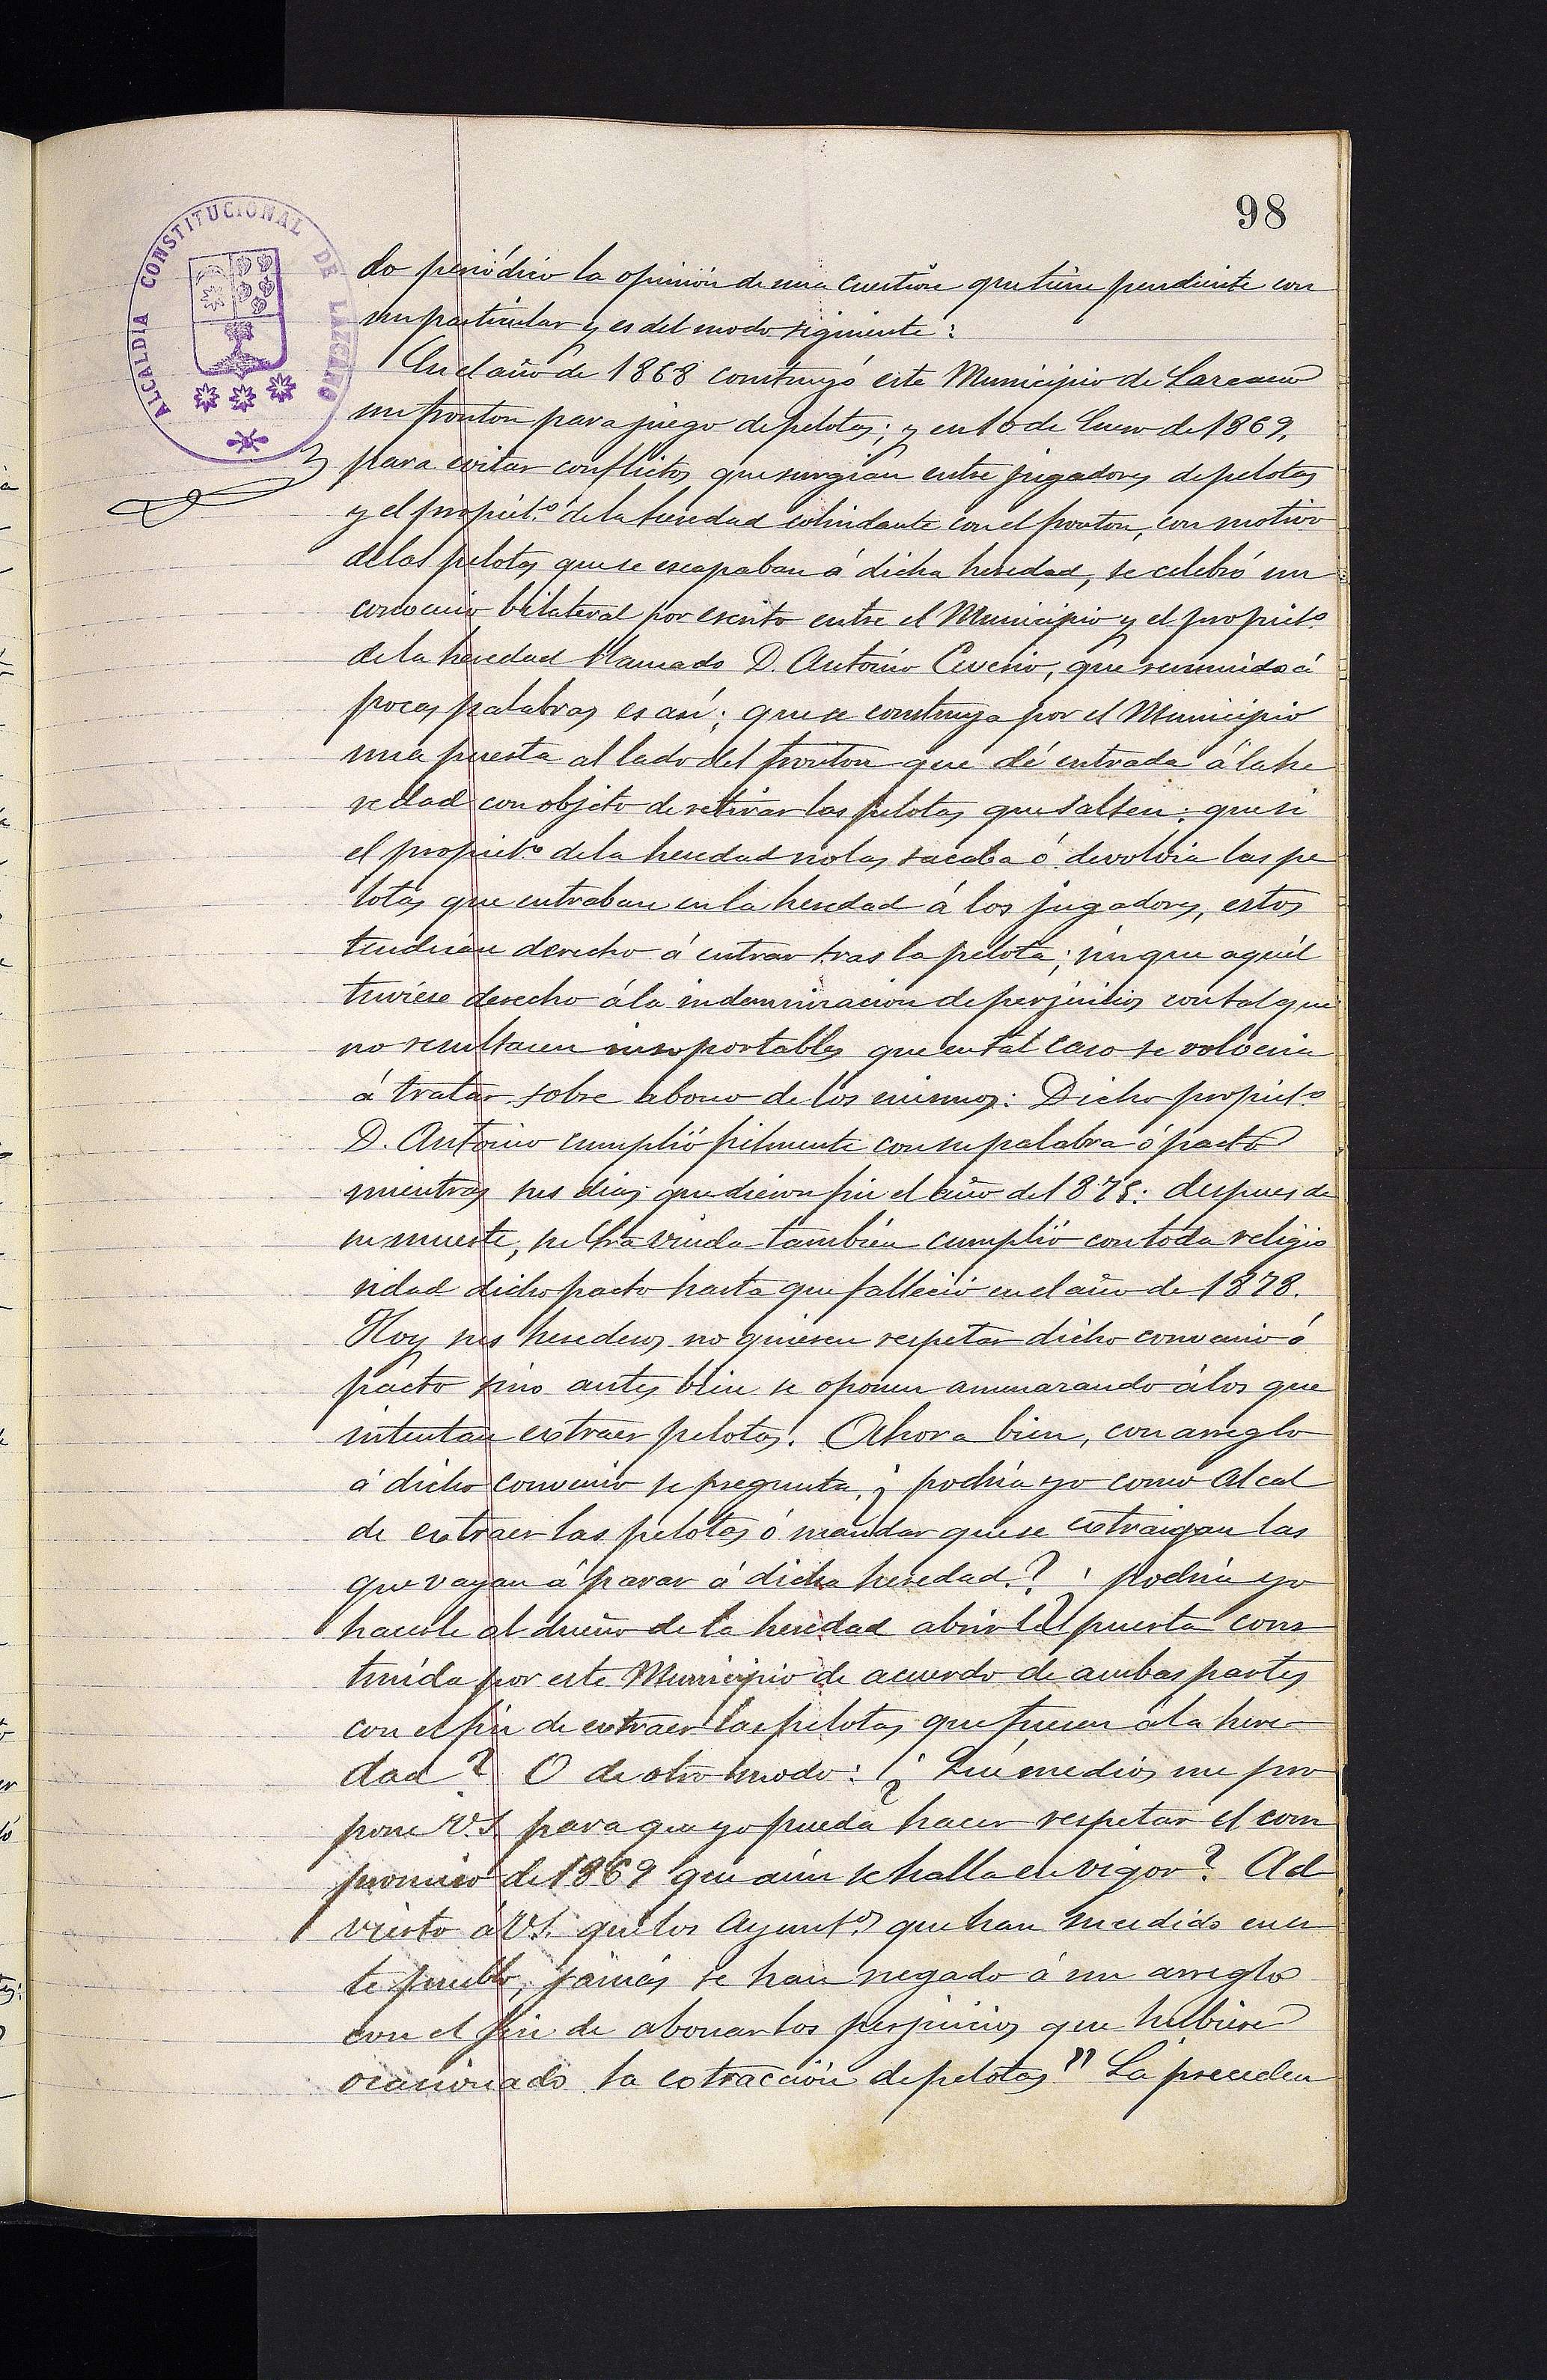 98
ALCALDIA CONSTITUCIONAL DE LAZCANO
do periódico la opinión de una cuestión que tiene pendiente con
un particular y es del modo siguiente:
En el año de 1868 construyó este Municipio de Lazcano
un fronton para juego de pelotas; y en 10 de Enero de 1869,
para evitar conflictos que surgian entre jugadores de pelotas
y el propiet.º de la heredad colindante con el fronton, con motivo
de las pelotas que se escapaban á dicha heredad, se celebró un
convenio bilateral por escrito entre el Municipio y el propiet.º
de la heredad llamado D. Antonio que resumido á
pocas palabras es así; que se construya por el Municipio
una puerta al lado del fronton que dé entrada á la he
redad con objeto de retirar las pelotas que salten: que si
el propiet.º de la heredad no las sacaba ó devolvia las pe
lotas que entraban en la heredad á los jugadores, estos
tendrían derecho á entrar tras la pelota; sin que aquél
tuviese derecho á la indemnizacion de perjuicios con tal que
no resultasen insoportables que en tal caso se volveria
á tratar sobre abono de los mismos: Dicho propiet.º
D. Antonio cumplió fielmente con su palabra ó pacto
mientras sus dias que dieron fin el año de 1875: despues de
su muerte, su viuda también cumplió con toda religio
sidad dicho pacto hasta que falleció en el año de 1878.
Hoy sus herederos no quieren respetar dicho convenio ó
pacto sino antes bien se oponen amenazando á los que
intentan extraer pelotas. Ahora bien, con arreglo
á dicho convenio se pregunta, ¿ podria yo como Alcal
de extraer las pelotas ó mandar que se extraigan las
que vayan á parar á dicha heredad? ¿ podria yo
hacerle al dueño de la heredad abrir la puerta cons
truida por este Municipio de acuerdo de ambas partes
con el fin de extraer las pelotas que fuesen á la here-
dad? O de otro modo: ¿ Qué medios me pro
pone V.S. para que yo pueda hacer respetar el com
promiso de 1869 que aún se halla en vigor? Ad
vierto á V.S. que los Ayunt.os que han sucedido en es
te pueblo, jamás se han negado á un arreglo
con el fin de abonar los perjuicios que hubiere
ocasionado la extracción de pelotas" La preceden